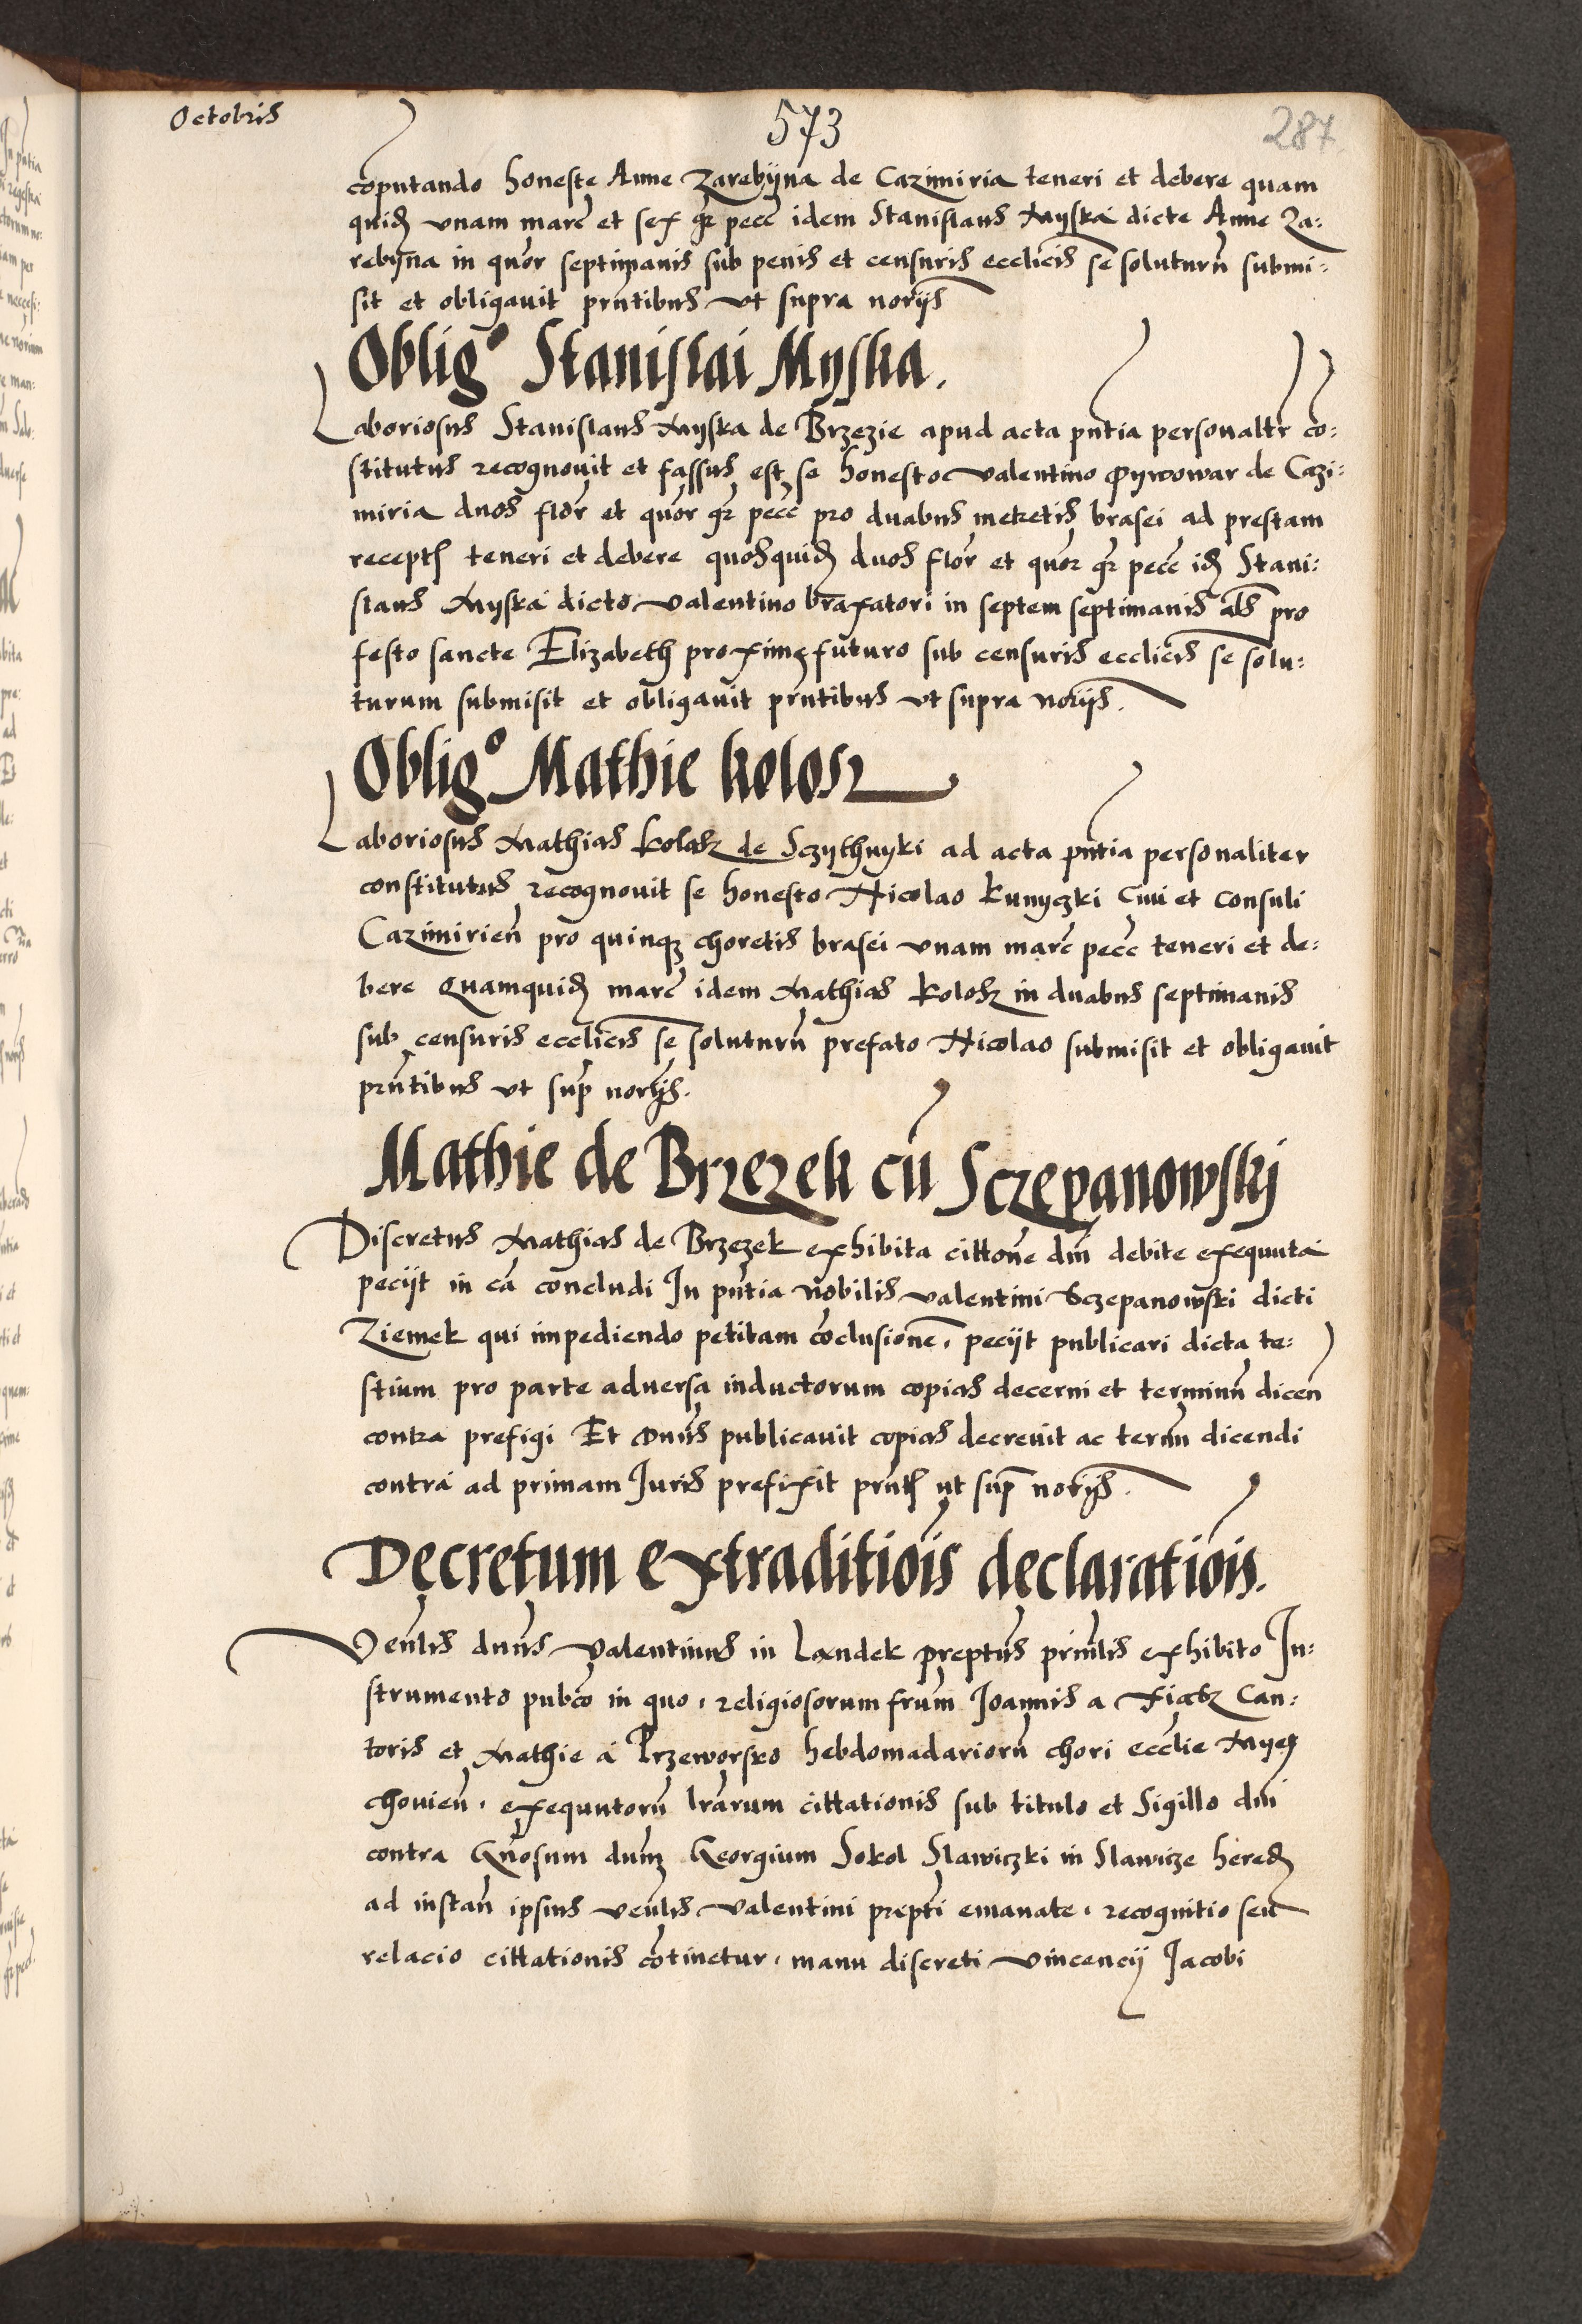 Octobris
573
287
cōputando honeste Anne Zarebÿna de Cazimiria teneri et debere quam
quid̄ vnam marc̄ et sex gr̄ pecc̄ idem Stanislaus Myska dicte Anne Za:
rebyna in quōr septimanis sub penis et censuris ecclīcis se soluturū submi:
sit et obligauit pn̄tibus vt supra norijs
Oblig° Stanislai Myska.
Laboriosus Stanislaus Myska de Brzezie apud acta pn̄tia personaltr̄ co:
stitutus recognouit et fassus est se honesto valentino pywowar de Cazi:
miria duos flor̄ et quōr gr̄ pecc̄ pro duabus meretis brasei ad prestam
recept̄ teneri et debere quosquid̄ duos flor̄ et quōr gr̄ pecc̄ id̄ Stani:
slaus Myska dicto valentino braxatori in septem septimanis als̄ pro
festo sancte Elizabeth proxime futuro sub censuris ecclīcis se solu:
turum submisit et obligauit pn̄tibus vt supra norijs.
Oblig° Mathie kolosz
Laboriosus Mathias kolosz de Sczythnyki ad acta pn̄tia personaliter
constitutus recognouit se honesto Nicolao kunyczki Ciui et consuli
Cazimirien̄ pro quinqz choretis brasei vnam marc̄ pecc̄ teneri et de:
bere Quamquid̄ marc̄ idem Mathias kolosz in duabus septimanis
sub censuris ecclīcis se soluturū prefato Nicolao submisit et obligauit
pn̄tibus vt sup̄ norijs.
Mathie de Brzezek cū Sczepanowskj
Discretus Mathias de Brzezek exhibita cittōne dn̄i debite exequuta
pecijt in cā concludi In pn̄tia nobilis valentini Sczepanowski dicti
Ziemek qui impediendo petitam cōclusionē. pecijt publicari dicta te:
stium pro parte aduersa inductorum copias decerni et terminū dicen̄
contra prefigi Et Dnūs publicauit copias decreuit ac termn̄ dicendi
contra ad primam Juris prefixit pn̄t̄ ut sup̄ norijs.
Decretum extraditiōis declaratiōis.
Venlīs dnūs Valentinus in Landek preptūs prin̄lis exhibito In:
strumento pubco in quo. religiosorum frūm Joannis a Xiąsz Can:
toris et Mathie a Przeworsko hebdomadariorū chori ecclīe Mye
chouien̄. exequutorū lrārum cittationis sub titulo et Sigillo dn̄i
contra Gn̄osum dnum̄ Georgium Sokol Slawiczki in Slawicze hered̄
ad instan̄ ipsius venlīs valentini prepti emanate. recognitio seu
relacio cittationis cōtinetur. manu discreti vincencij Jacobi